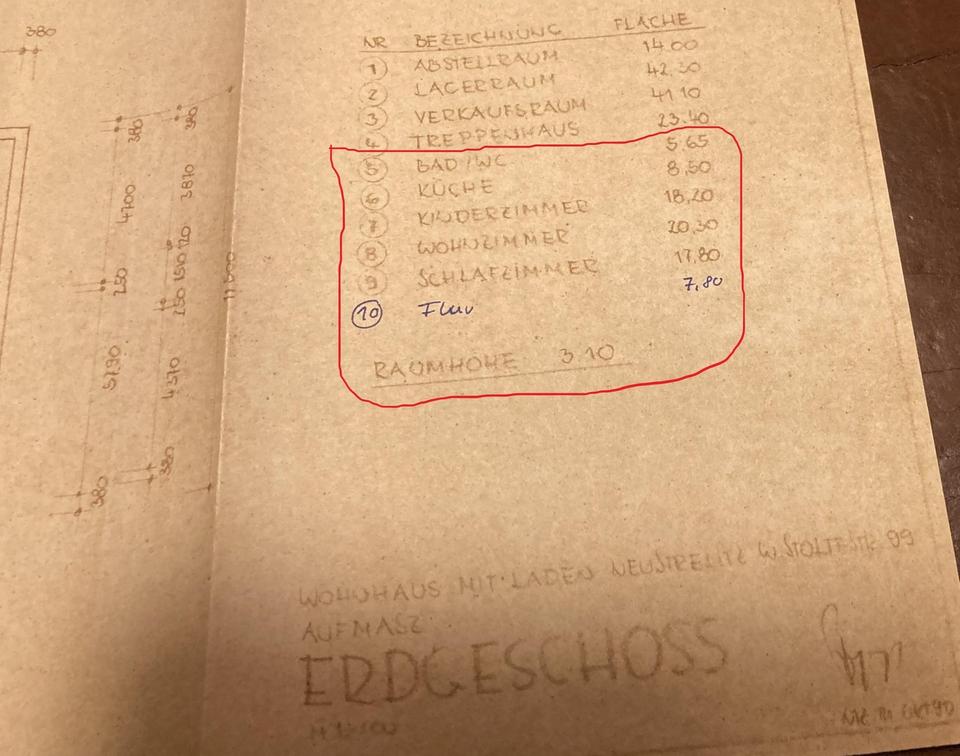 380
NR BEZEICHNUNG FLÄCHE
1 ABSTELLRAUM 14.00
2 LAGERRAUM 42.30
3 VERKAUFSRAUM 41.10
4 TREPPENHAUS 23.40
5 BAD/WC 5.65
6 KÜCHE 8,50
7 KINDERZIMMER 18,20
8 WOHNZIMMER 20,30
9 SCHLAFZIMMER 17,80
10 Flur 7,80
RAUMHÖHE 3.10
380
4700
250
5790
380
380
3870
120
1510
250
4370
380
WOHNHAUS MIT LADEN NEUSTRELITZ W.STOLTESTR 99
AUFMASZ
ERDGESCHOSS